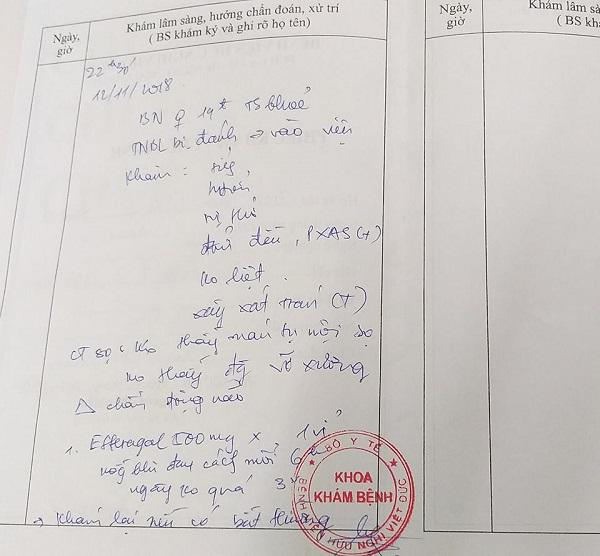 Ngày, giờ
Khám lâm sàng, hướng chẩn đoán, xử trí
( BS khám ký và ghi rõ họ tên)
Ngày, giờ
Khám lâm sà
( BS
22h30'
12/11/2018.
BN ♀ 19t TS khoẻ
TNSL bị đánh → vào viện
Khám: tỉnh,
đồng tử đều, PXAS (+)
ko liệt.
xây xát trán (T)
CT sọ: Ko thấy máu tụ nội sọ
ko thấy đg vỡ xương
Δ chấn động não
1. Efferagal 500mg x 1 vỉ
uống khi đau cách mỗi 6h
ngày ko quá 3v
→ Khám lại nếu có bất thường
BỘ Y TẾ
KHOA
KHÁM BỆNH
BỆNH VIỆN HỮU NGHỊ VIỆT ĐỨC